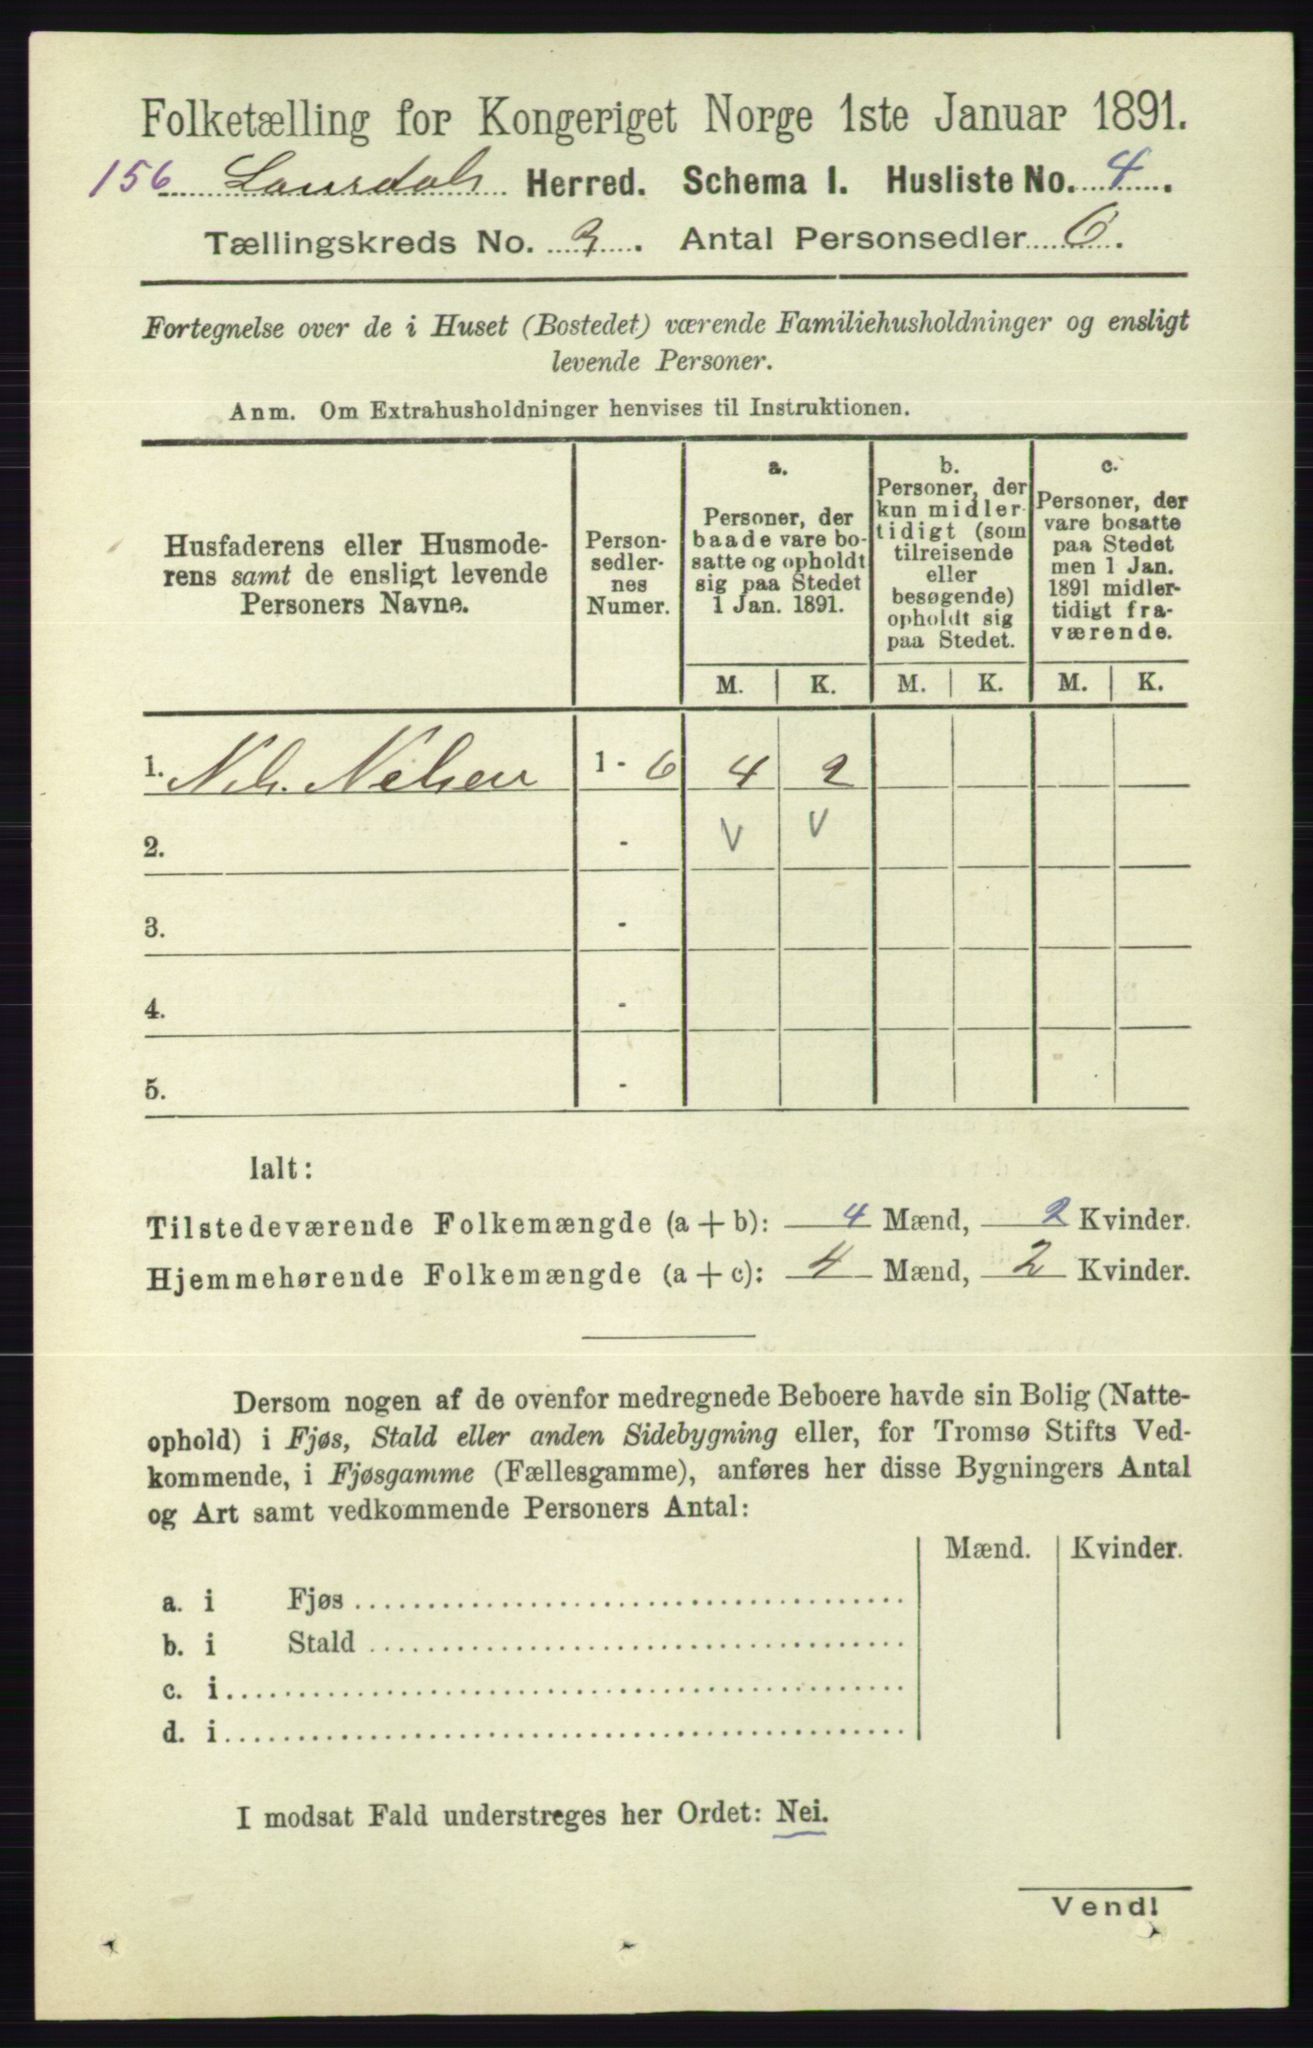 Folketælling for Kongeriget Norge 1ste Januar 1891.
156 Laurdals Herred. Schema 1. Husliste No. 4.
Tællingskreds No. 3. Antal Personsedler 6.
Fortegnelse over de i Huset (Bostedet) værende Familiehusholdninger og ensligt
levende Personer.
Anm. Om Extrahusholdninger henvises til Instruktionen.
Husfaderens eller Husmode-
rens samt de ensligt levende
Personers Navne.
Person-
sedler-
nes
Numer.
a.
Personer, der
baade vare bo-
satte og opholdt
sig paa Stedet
1 Jan. 1891.
b.
Personer, der
kun midler-
tidigt (som
tilreisende
eller
besøgende)
opholdt sig
paa Stedet.
c.
Personer, der
vare bosatte
paa Stedet
men 1 Jan.
1891 midler-
tidigt fra-
værende.
M. K. M. K. M. K.
1. Nils Nelsen 1 - 6 4 2
2. - V V
3. -
4. -
5. -
Ialt:
Tilstedeværende Folkemængde (a + b): 4 Mænd, 2 Kvinder.
Hjemmehørende Folkemængde (a + c): 4 Mænd, 2 Kvinder.
Dersom nogen af de ovenfor medregnede Beboere havde sin Bolig (Natte-
ophold) i Fjøs, Stald eller anden Sidebygning eller, for Tromsø Stifts Ved-
kommende, i Fjøsgamme (Fællesgamme), anføres her disse Bygningers Antal
og Art samt vedkommende Personers Antal:
Mænd. Kvinder.
a. i Fjøs
b. i Stald
c. i
d. i
I modsat Fald understreges her Ordet: Nei.
Vend!